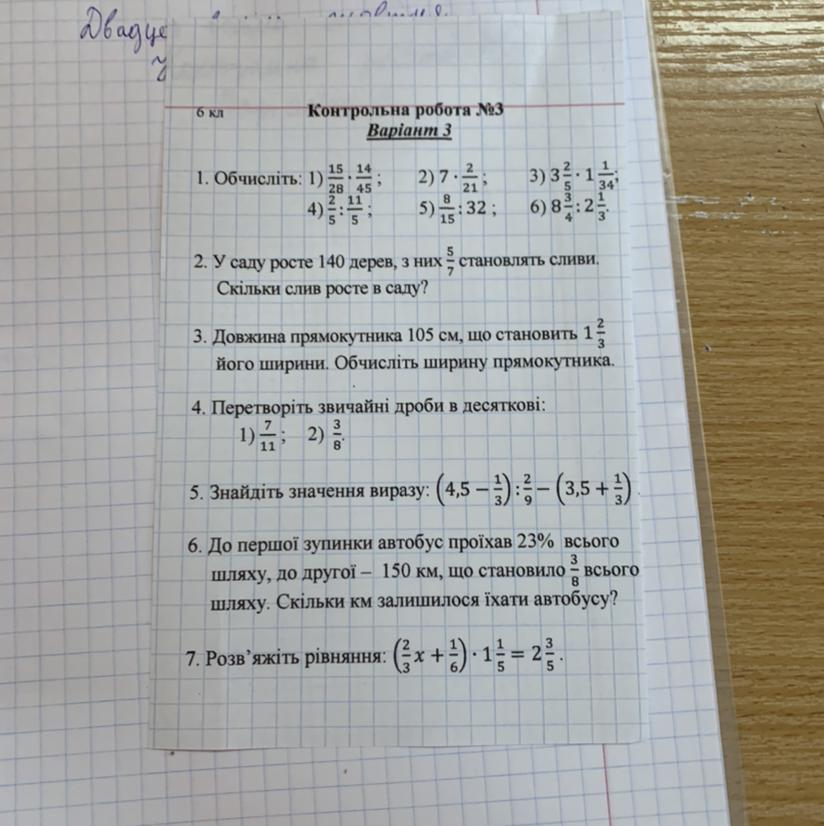 Двадце
6 кл Контрольна робота №3
Варіант 3
1. Обчисліть: 1) 15/28 · 14/45; 2) 7 · 2/21; 3) 3 2/5 · 1 1/34;
4) 2/5 : 11/5; 5) 8/15 : 32; 6) 8 3/4 : 2 1/3.
2. У саду росте 140 дерев, з них 5/7 становлять сливи.
Скільки слив росте в саду?
3. Довжина прямокутника 105 см, що становить 1 2/3
його ширини. Обчисліть ширину прямокутника.
4. Перетворіть звичайні дроби в десяткові:
1) 7/11; 2) 3/8.
5. Знайдіть значення виразу: (4,5 − 1/3) : 2/9 − (3,5 + 1/3)
6. До першої зупинки автобус проїхав 23% всього
шляху, до другої – 150 км, що становило 3/8 всього
шляху. Скільки км залишилося їхати автобусу?
7. Розв’яжіть рівняння: (2/3 x + 1/6) · 1 1/5 = 2 3/5.